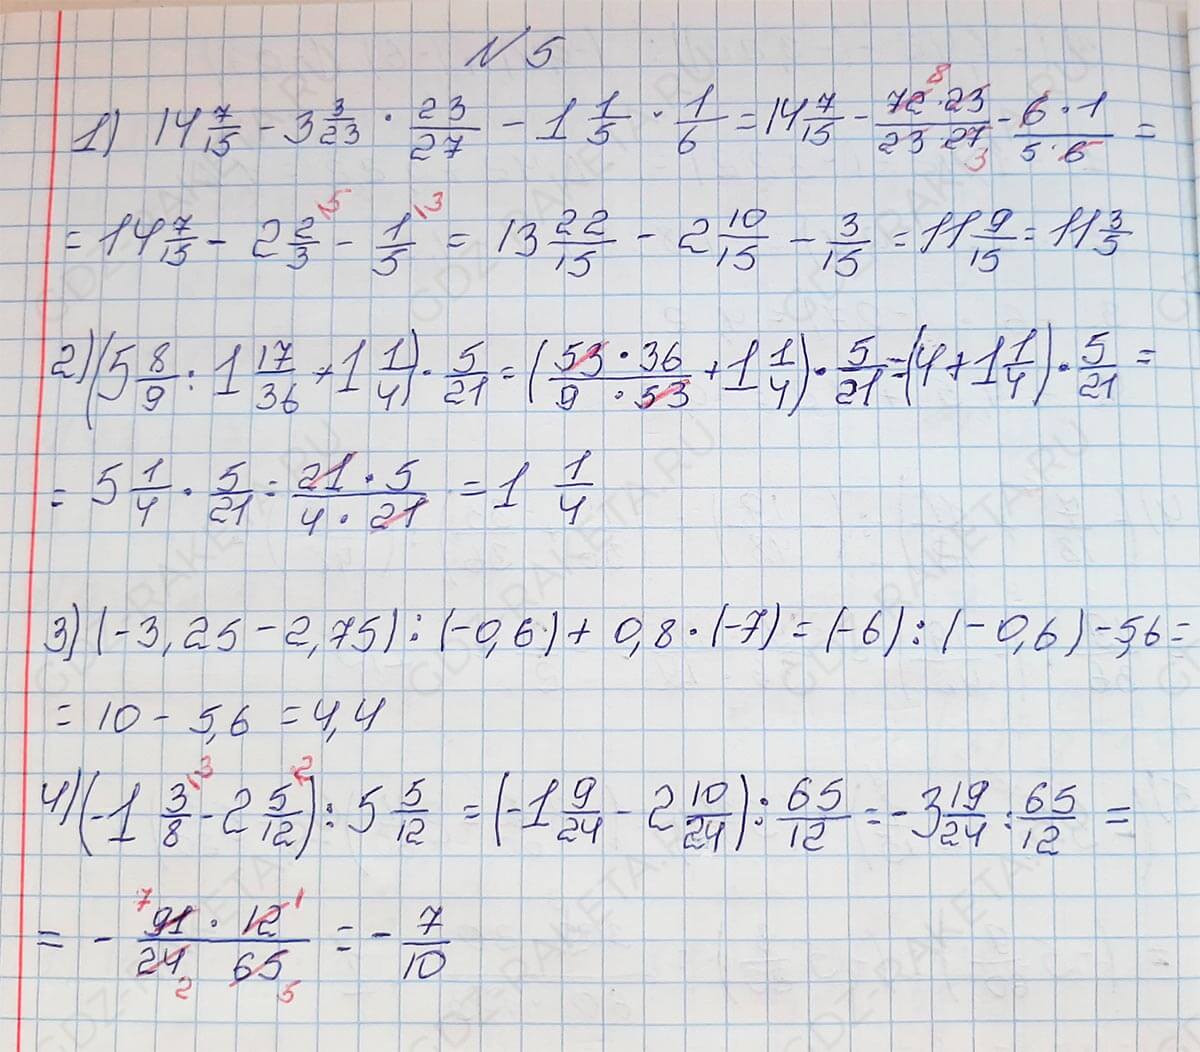 N 5
1) 14 7/15 - 3 3/23 · 23/27 - 1 1/5 · 1/6 = 14 7/15 - 72·23/23·27 - 6·1/5·6 =
= 14 7/15 - 2 2/3 - 1/5 = 13 22/15 - 2 10/15 - 3/15 = 11 9/15 = 11 3/5
2) (5 8/9 : 1 17/36 + 1 1/4) · 5/21 = (53·36/9·53 + 1 1/4) · 5/21 = (4 + 1 1/4) · 5/21 =
= 5 1/4 · 5/21 = 21·5/4·21 = 1 1/4
3) (-3,25 - 2,75) : (-0,6) + 0,8 · (-7) = (-6) : (-0,6) - 5,6 =
= 10 - 5,6 = 4,4
4) (-1 3/8 - 2 5/12) : 5 5/12 = (-1 9/24 - 2 10/24) : 65/12 = -3 19/24 : 65/12 =
= - 91·12/24 65 = - 7/10
GDZ-RAKETA.RU